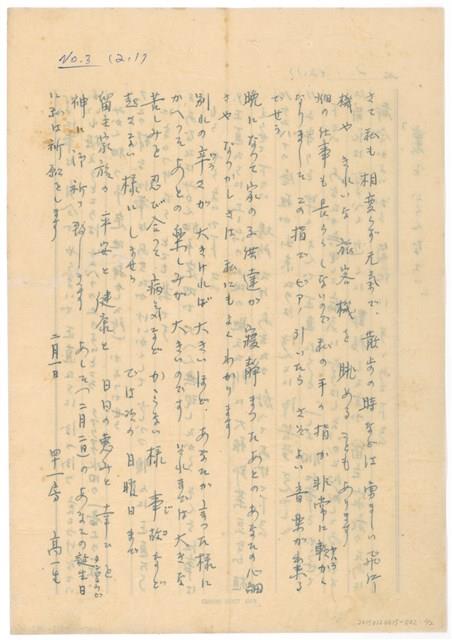 No.3 (2.1)
さて私も相変らず元気で、散歩の時などは勇ましい飛行
機や きれいな旅客機を眺めることもあります
畑の仕事も長くないので私の手の指が非常に軽かく
なりました この指でピアノ引いたら さぞよい音楽が出来る
でせう
晩になって家の子供達が寝静まったあとの、あなたの心細
さや なつかしさは、私にもよくわかります
別れの辛さが大きければ大きいほど、あなたが言った様に
かへってあとの楽しみが大きいのです それまでは大きな
苦しみを忍び合って病気など かからない様 事故など
起さない様にしませう では次の日曜日まで
留守家族の平安と健康と 日日の恵みと幸ひを
神に御祈り致します あした(二月二日)のあなたの誕生日
に私は祈願をします
二月一日 高一生
20150120015-002